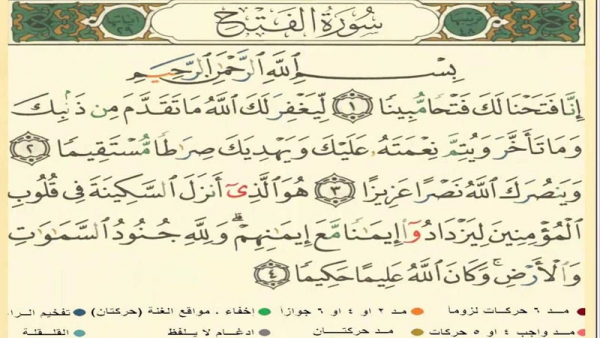 سُورَةُ الفَتْحِ
بِسْمِ ٱللَّهِ ٱلرَّحْمَٰنِ ٱلرَّحِيمِ
إِنَّا فَتَحْنَا لَكَ فَتْحًا مُّبِينًا ١ لِّيَغْفِرَ لَكَ ٱللَّهُ مَا تَقَدَّمَ مِن ذَنۢبِكَ
وَمَا تَأَخَّرَ وَيُتِمَّ نِعْمَتَهُۥ عَلَيْكَ وَيَهْدِيَكَ صِرَٰطًا مُّسْتَقِيمًا ٢
وَيَنصُرَكَ ٱللَّهُ نَصْرًا عَزِيزًا ٣ هُوَ ٱلَّذِىٓ أَنزَلَ ٱلسَّكِينَةَ فِى قُلُوبِ
ٱلْمُؤْمِنِينَ لِيَزْدَادُوٓا۟ إِيمَٰنًا مَّعَ إِيمَٰنِهِمْ ۗ وَلِلَّهِ جُنُودُ ٱلسَّمَٰوَٰتِ
وَٱلْأَرْضِ ۚ وَكَانَ ٱللَّهُ عَلِيمًا حَكِيمًا ٤
مـد ٦ حركات لزوماً مـد ٢ او ٤ او ٦ جوازاً إخفاء ، مواقع الغنة (حركتان) تفخيم الـرا
مـد واجب ٤ او ٥ حركات مـد حركتـان ادغـام لا يـلفظ القلـقلة